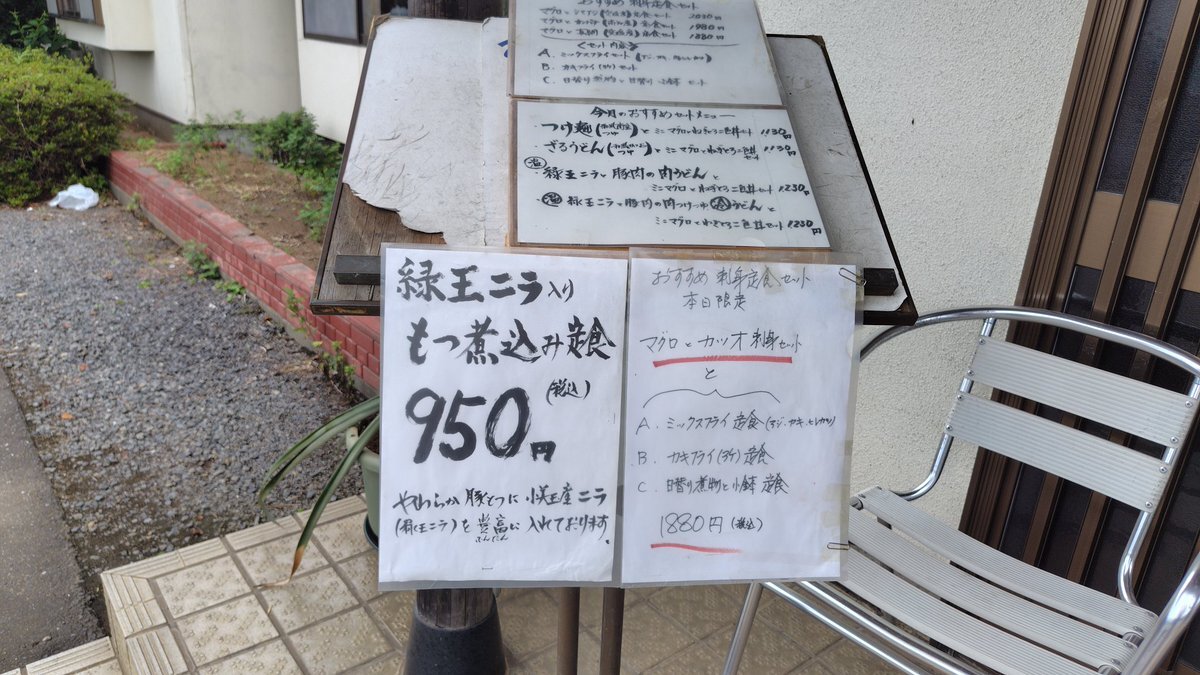 おすすめ 刺身定食セット
定食セット 2030円
定食セット 1980円
定食セット 1880円
<セット内容>
A. ミックスフライセット
B. カキフライ(3ケ)セット
C. 日替り煮物と日替り小鉢セット
今月のおすすめセットメニュー
つけ麺 とミニマグロとねぎとろ二色丼セット 1130円
ざるうどん とミニマグロとねぎとろ二色丼セット 1130円
温 緑王ニラと豚肉の肉うどんと
ミニマグロとねぎとろ二色丼セット 1230円
温 緑王ニラと豚肉の肉つけつゆ冷うどんと
ミニマグロとねぎとろ二色丼セット 1230円
緑王ニラ入り
もつ煮込み定食
950円(税込)
やわらか豚もつに小美玉産ニラ
(緑王ニラ)を豊富に入れております。
ふんだん
おすすめ 刺身定食セット
本日限定
マグロとカツオ刺身セット
と
A. ミックスフライ定食(アジ、カキ、ヒレカツ)
B. カキフライ(3ケ)定食
C. 日替り煮物と小鉢定食
1880円(税込)